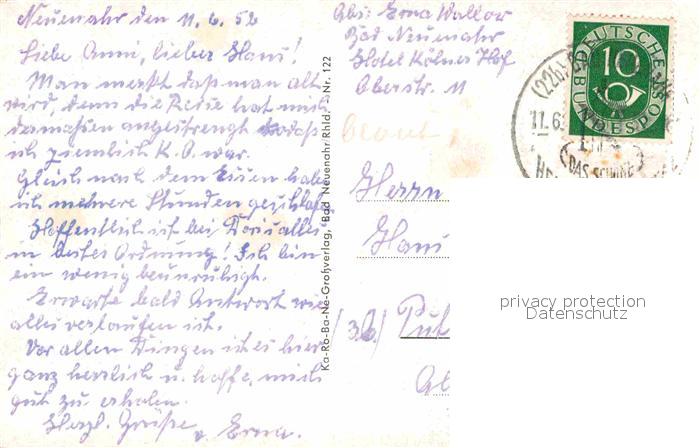 Neuenahr den 11.6.52
Liebe Anni, lieber Hans!
Man merkt daß man alt
wird, denn die Reise hat mich
dermaßen angestrengt sodaß
ich ziemlich K.O. war.
Gleich nach dem Essen habe
ich mehrere Stunden geschlafen
Hoffentlich ist bei Doris alles
in bester Ordnung! Ich bin
ein wenig beunruhigt.
Erwarte bald Antwort wie
alles verlaufen ist.
Vor allen Dingen ist es hier
ganz herrlich u. hoffe, mich
gut zu erholen.
Herzl. Grüße
v. Erna.
Ka-Ro-Ba-Ne-Großverlag, Bad Neuenahr/Rhld. - Nr. 122
Abs: Erna Wallow
Bad Neuenahr
Hotel Kölner Hof
Oberstr. 11
DEUTSCHE BUNDESPOST
10
(22b)
11.6.
Herrn
Hans
Put
privacy protection
Datenschutz